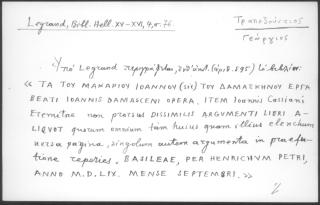 Legrand, Bibl. Hell. XV–XVI, 4, σ. 76.
Τραπεζούντιος
Γεώργιος
Ὑπὸ Legrand περιγράφεται, (ἀριθ. 895) τὸ βιβλίον:
« ΤΑ ΤΟΥ ΜΑΚΑΡΙΟΥ ΙΩΑΝΝΟΥ (sic) ΤΟΥ ΔΑΜΑΣΚΗΝΟΥ ΕΡΓΑ
BEATI IOANNIS DAMASCENI OPERA, ITEM Ioannis Cassiani
Eremitae non prorsus DISSIMILIS ARGUMENTI LIBRI A-
LIQUOT quorum omnium tam huius quam illius elenchum
versa pagina, singulorum autem argumenta in praefa-
tione reperies. BASILEAE, PER HENRICHUM PETRI,
ANNO M.D.LIX. MENSE SEPTEMBRI. »